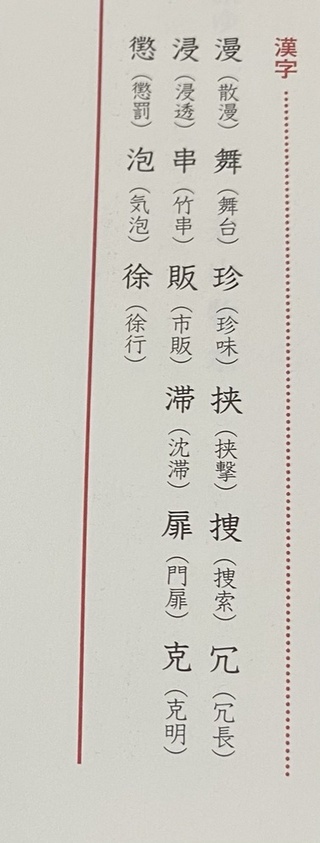 漢字
漫（散漫）舞（舞台）珍（珍味）挟（挟撃）捜（捜索）冗（冗長）
浸（浸透）串（竹串）販（市販）滞（沈滞）扉（門扉）克（克明）
懲（懲罰）泡（気泡）徐（徐行）